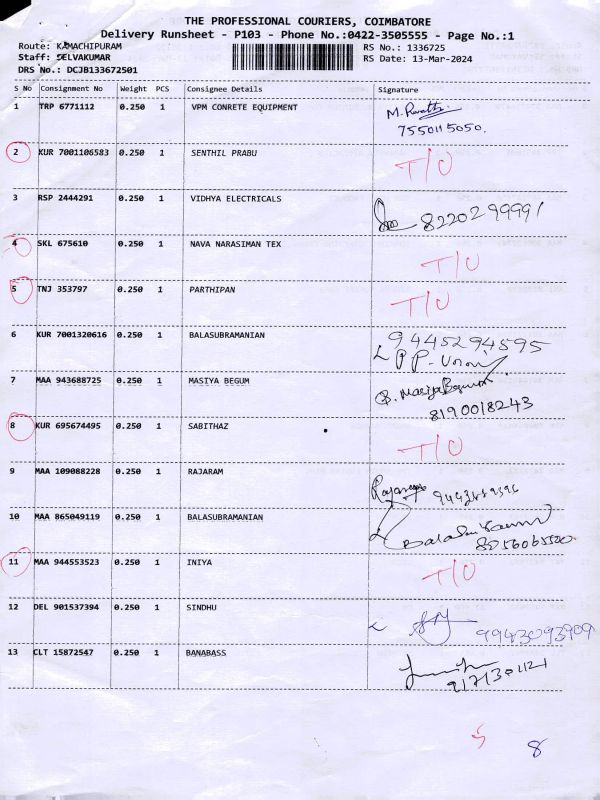 THE PROFESSIONAL COURIERS, COIMBATORE
Delivery Runsheet - P103 - Phone No.:0422-3505555 - Page No.:1
Route: KAMACHIPURAM RS No.: 1336725
Staff: SELVAKUMAR RS Date: 13-Mar-2024
DRS No.: DCJB133672501
S No Consignment No Weight PCS Consignee Details Signature
1 TRP 6771112 0.250 1 VPM CONRETE EQUIPMENT M.
7550115050.
2 KUR 7001106583 0.250 1 SENTHIL PRABU T/O
3 RSP 2444291 0.250 1 VIDHYA ELECTRICALS 8220299991
4 SKL 675610 0.250 1 NAVA NARASIMAN TEX T/O
5 TNJ 353797 0.250 1 PARTHIPAN T/O
6 KUR 7001320616 0.250 1 BALASUBRAMANIAN 9445294595
7 MAA 943688725 0.250 1 MASIYA BEGUM Masiya Begum
8190018243
8 KUR 695674495 0.250 1 SABITHAZ T/O
9 MAA 109088228 0.250 1 RAJARAM
10 MAA 865049119 0.250 1 BALASUBRAMANIAN
11 MAA 944553523 0.250 1 INIYA T/O
12 DEL 901537394 0.250 1 SINDHU 9943093909
13 CLT 15872547 0.250 1 BANABASS
5 8